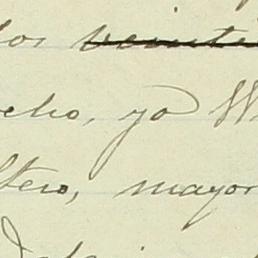 los veinti
ocho, yo W
ltero, mayor